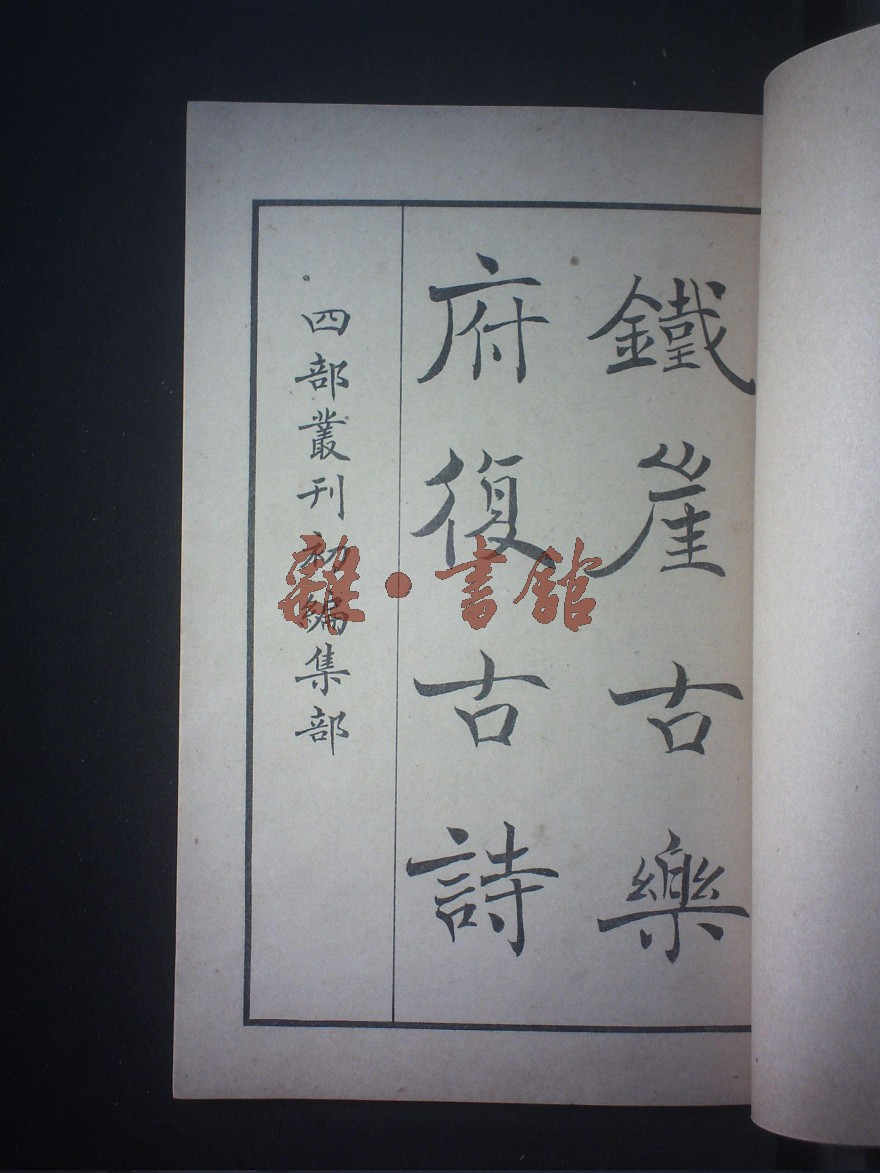 鐵崖古樂
府復古詩
四部叢刊初編集部
雜·書館